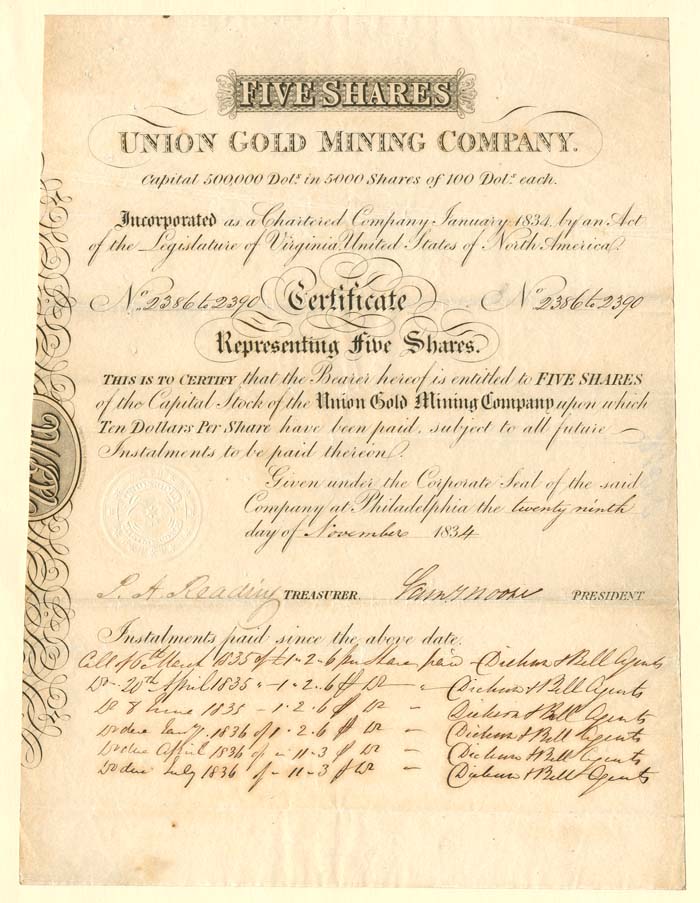 FIVE SHARES
UNION GOLD MINING COMPANY.
Capital 500,000 Dolˢ. in 5000 Shares of 100 Dolˢ. each.
Incorporated as a Chartered Company January 1834, by an Act
of the Legislature of Virginia United States of North America.
Nº. 2386 to 2390 Certificate Nº 2386 to 2390
Representing Five Shares.
THIS IS TO CERTIFY that the Bearer hereof is entitled to FIVE SHARES
of the Capital Stock of the Union Gold Mining Company upon which
Ten Dollars Per Share have been paid, subject to all future
Instalments to be paid thereon.
Given under the Corporate Seal of the said
Company at Philadelphia the twenty ninth
day of November 1834
P. A. Reading TREASURER. PRESIDENT
Instalments paid since the above date.
Call of 6th March 1835 of £1-2-6 per share paid - Dickson & Bell Agents
Dº - 20th April 1835 " - 1-2-6 Dº " Dickson & Bell Agents
Dº 8 June 1835 - 1-2-6 Dº " Dickson & Bell Agents
Dº due Jany. 1836 of 1-2-6 Dº " Dickson & Bell Agents
Dº due April 1836 of - 11-3 Dº - Dickson & Bell Agents
Dº due July 1836 of - 11-3 Dº - Dickson & Bell Agents